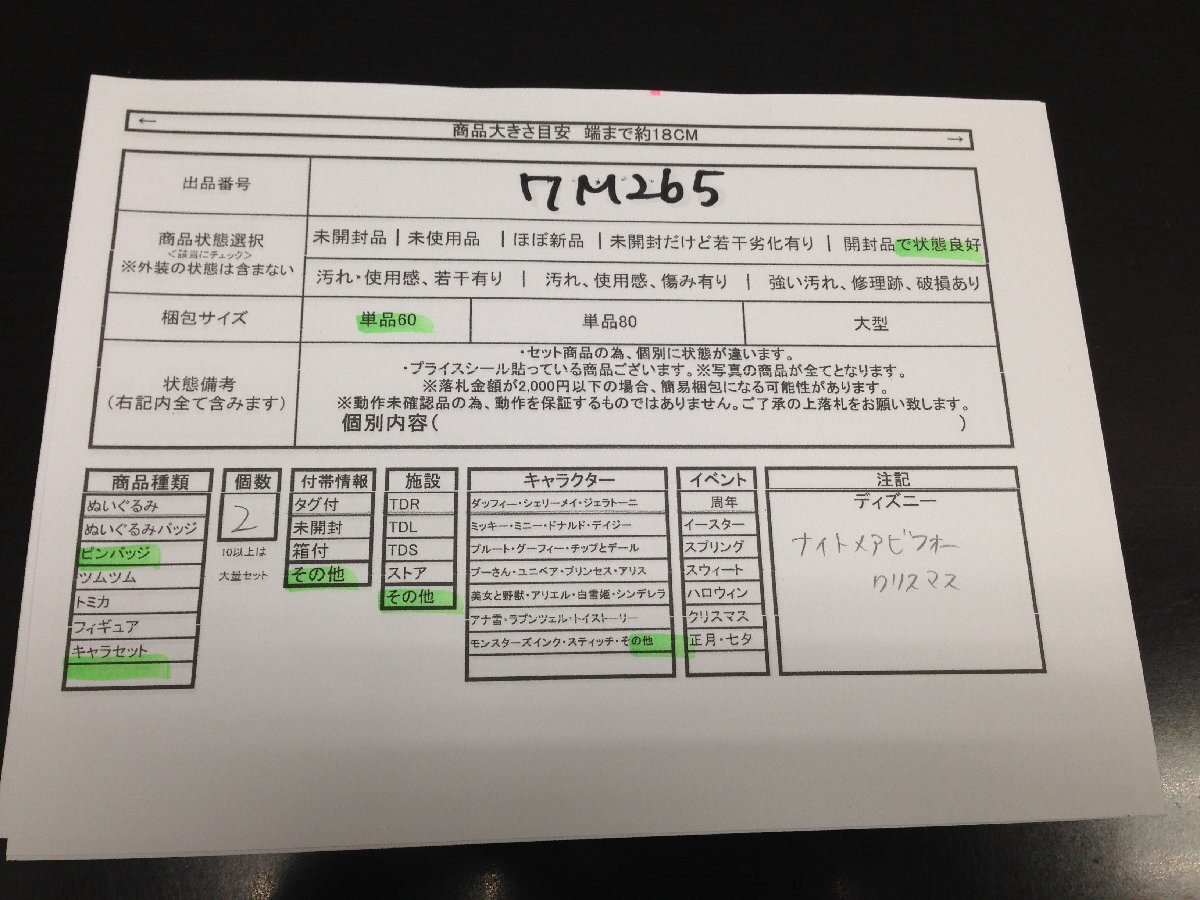 ← 商品大きさ目安 端まで約18CM →
出品番号 ワM265
商品状態選択
<該当にチェック>
※外装の状態は含まない
未開封品 | 未使用品 | ほぼ新品 | 未開封だけど若干劣化有り | 開封品で状態良好
汚れ・使用感、若干有り | 汚れ、使用感、傷み有り | 強い汚れ、修理跡、破損あり
梱包サイズ 単品60 単品80 大型
状態備考
(右記内全て含みます)
・セット商品の為、個別に状態が違います。
・プライスシール貼っている商品ございます。※写真の商品が全てとなります。
※落札金額が2,000円以下の場合、簡易梱包になる可能性があります。
※動作未確認品の為、動作を保証するものではありません。ご了承の上落札をお願い致します。
個別内容( )
商品種類
ぬいぐるみ
ぬいぐるみバッジ
ピンバッジ
ツムツム
トミカ
フィギュア
キャラセット
個数
2
10以上は
大量セット
付帯情報
タグ付
未開封
箱付
その他
施設
TDR
TDL
TDS
ストア
その他
キャラクター
ダッフィー・シェリーメイ・ジェラトーニ
ミッキー・ミニー・ドナルド・デイジー
プルート・グーフィー・チップとデール
プーさん・ユニベア・プリンセス・アリス
美女と野獣・アリエル・白雪姫・シンデレラ
アナ雪・ラプンツェル・トイストーリー
モンスターズインク・スティッチ・その他
イベント
周年
イースター
スプリング
スウィート
ハロウィン
クリスマス
正月・七夕
注記
ディズニー
ナイトメアビフォー
クリスマス